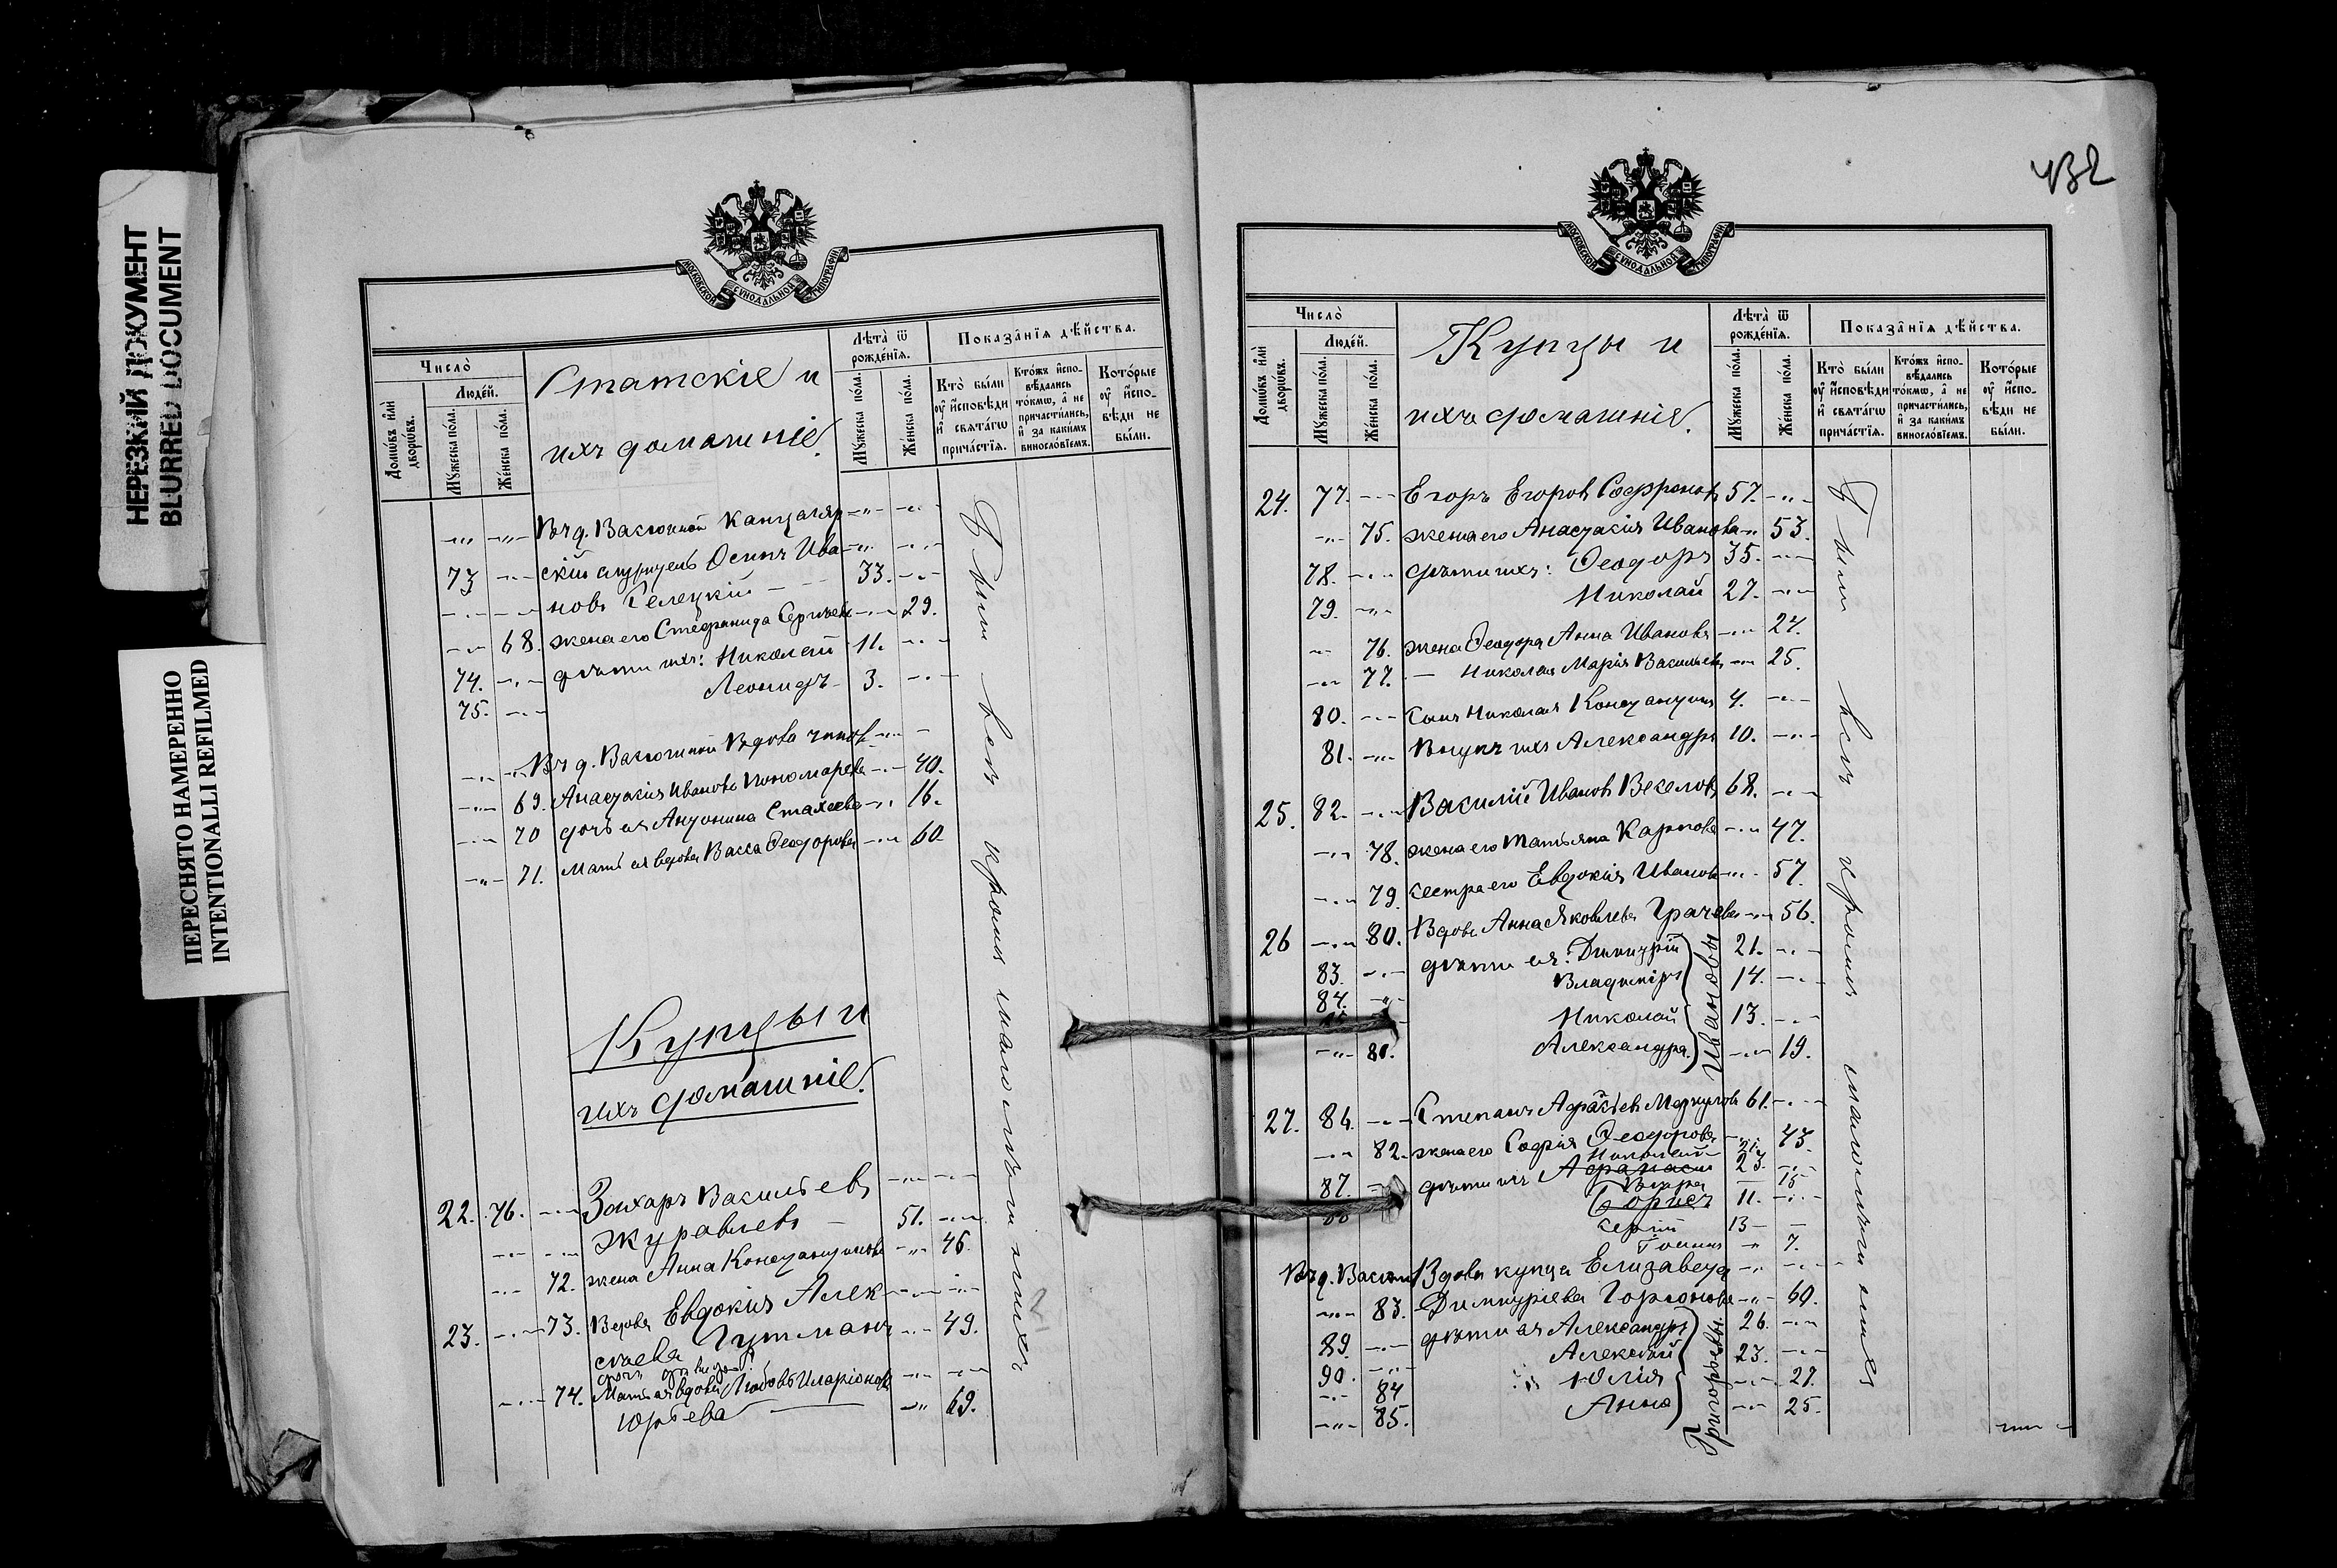 НЕРЕЗКИЙ ДОКУМЕНТ
BLURRED DOCUMENT
ПЕРЕСНЯТО НАМЕРЕННО
INTENTIONALLI REFILMED
МОСКОВСКОЙ СѴНОДАЛЬНОЙ ТИПОГРАФІИ
Число̀
Домѡ́въ и҆лѝ дворѡ́въ.
Людéй.
Мꙋ́жеска пóла.
Жéнска пóла.
Статскіе и
ихъ домашніе.
Лѣта̀ ѿ рождéнїѧ.
Мꙋ́жеска пóла.
Жéнска пóла.
Показа̑нїѧ дѣ́йства.
Кто̀ бы́ли ᲂу҆ и҆́сповѣди и҆ свѧта́гѡ прича́стїѧ.
Кто́жъ и҆спо-
вѣ́дались то́кмѡ, а҆ не причасти́лись, и҆ за каки́мъ винослóвїемъ.
Кото́рые ᲂу҆ и҆́спо-
вѣди не бы́ли.
Въ д. Васюниной Канцеляр
73 скій служитель Осипъ Ива
новъ Селецкій - 33.
68. жена его Стефанида Сергѣева 29.
74. дѣти ихъ: Николай 11.
75. Леонидъ 3.
Въ д. Васюниной Вдова чинов
69. Анастасія Иванова Пономарева 40.
70 дочь ея Антонина Стахеева 16.
71. Мать ея вдова Васса Ѳеодорова 60
Купцы и
ихъ домашніе.
22. 76. Захаръ Васильевъ
Журавлевъ - 51.
72. жена Анна Константинова 46.
23. 73. Вдова Евдокія Алек
сѣева Гутманъ 49.
74. Мать ея вдова Любовь Иларіонова
Юрьева 69.
Были всѣ кромѣ малолѣтнихъ
432
МОСКОВСКОЙ СѴНОДАЛЬНОЙ ТИПОГРАФІИ
Число̀
Домѡ́въ и҆лѝ дворѡ́въ.
Людéй.
Мꙋ́жеска пóла.
Жéнска пóла.
Купцы и
ихъ домашніе.
Лѣта̀ ѿ рождéнїѧ.
Мꙋ́жеска пóла.
Жéнска пóла.
Показа̑нїѧ дѣ́йства.
Кто̀ бы́ли ᲂу҆ и҆́сповѣди и҆ свѧта́гѡ прича́стїѧ.
Кто́жъ и҆спо-
вѣ́дались то́кмѡ, а҆ не причасти́лись, и҆ за каки́мъ винослóвїемъ.
Кото́рые ᲂу҆ и҆́спо-
вѣди не бы́ли.
24. 77. Егоръ Егоровъ Софроновъ 57.
75. жена его Анастасія Иванова 53.
78. дѣти ихъ: Ѳеодоръ 35.
79. Николай 27.
76. жена Ѳеодора Анна Иванова 27.
77. — Николая Марія Васильева 25.
80. сынъ Николая Константинъ 4.
81. Внукъ ихъ Александръ 10.
25. 82. Василій Ивановъ Веселовъ 68.
78. жена его Татьяна Карпова 47.
79. сестра его Евдокія Иванова 57.
26 80. Вдова Анна Яковлева Грачева 56.
83. дѣти ея: Димитрій 21.
84. Владиміръ 14.
Николай 13.
81. Александра 19.
Ивановы
27. 86. Степанъ Меркуловъ 61.
82. жена его Софія Ѳеодорова 43.
Николай 21
87. дѣти ихъ Афанасій 23.
Вѣра 15
Борисъ 11.
Сергій 13
7.
Въ д. Васюн Вдова купца Елизавета
83. Димитріева Горіонова 60.
89. дѣти ея Александръ 26.
90. Алексѣй 23.
84 Юлія 27.
85. Анна 25.
Григорьевы.
Были всѣ кромѣ малолѣтнихъ